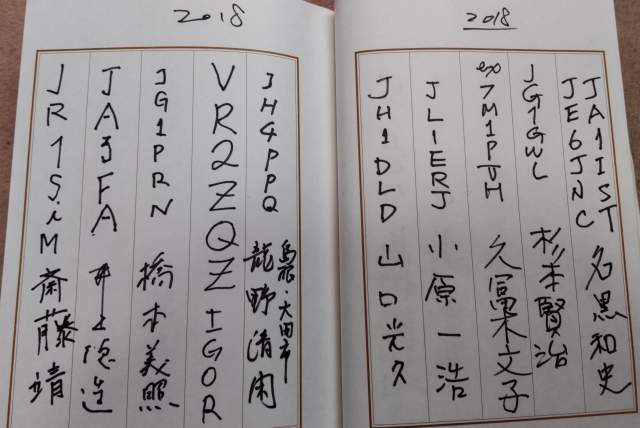 2018
JA1IST
JE6JNC 名黒和史
JG1GWL 杉本賢治
ex 7M1PTH 久冨木文子
JL1ERJ 小原一浩
JH1DLD 山口光久
2018
JH4PPQ 島根・大田市
VR2ZQZ IGOR
JG1PRN 橋本義照
JA3FA 井上徳造
JR1SiM 齋藤靖